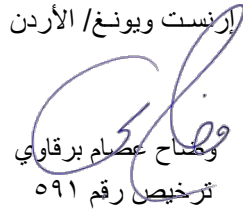 إرنست ويونغ/ الأردن
وضاح عصام برقاوي
ترخيص رقم ٥٩١